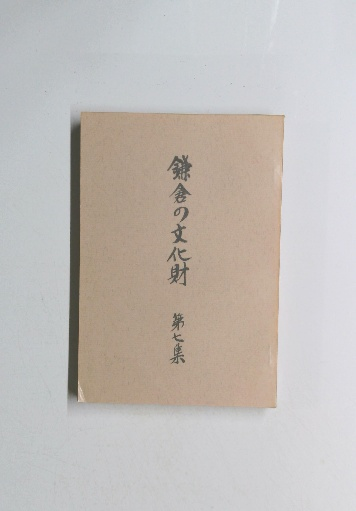 鎌倉の文化財
第七集